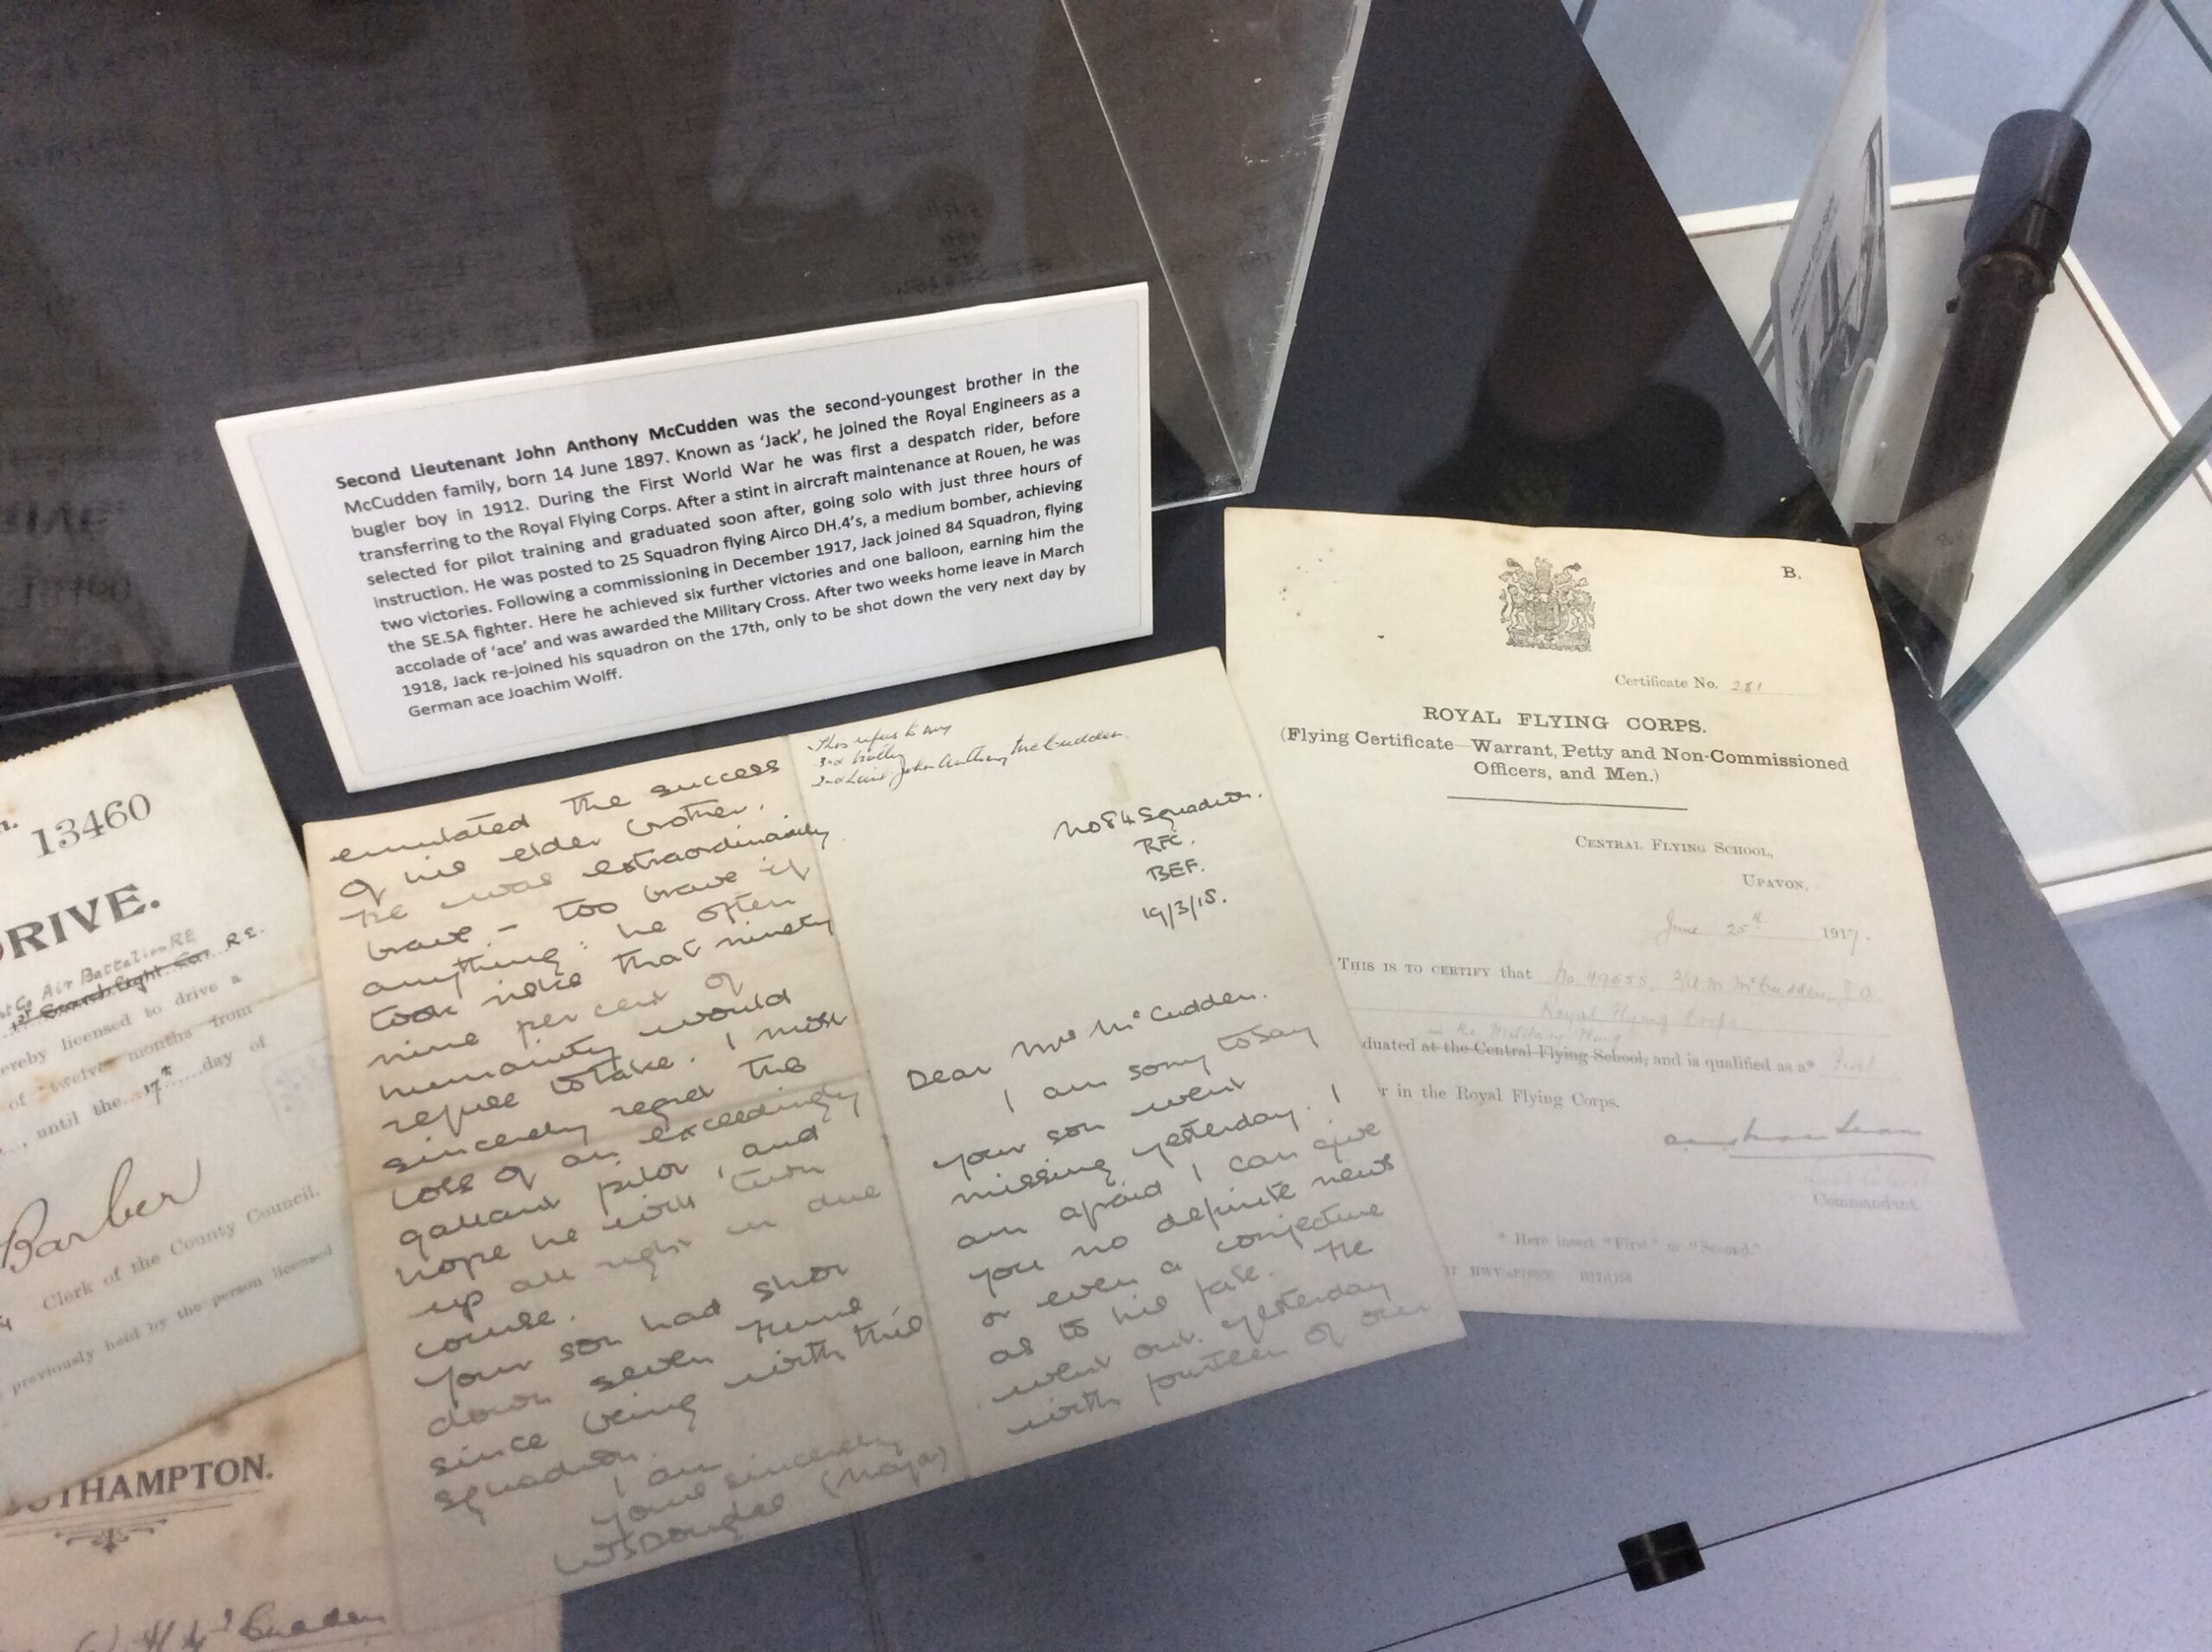 Second Lieutenant John Anthony McCudden was the second-youngest brother in the
McCudden family, born 14 June 1897. Known as ‘Jack’, he joined the Royal Engineers as a
bugler boy in 1912. During the First World War he was first a despatch rider, before
transferring to the Royal Flying Corps. After a stint in aircraft maintenance at Rouen, he was
selected for pilot training and graduated soon after, going solo with just three hours of
instruction. He was posted to 25 Squadron flying Airco DH.4’s, a medium bomber, achieving
two victories. Following a commissioning in December 1917, Jack joined 84 Squadron, flying
the SE.5A fighter. Here he achieved six further victories and one balloon, earning him the
accolade of ‘ace’ and was awarded the Military Cross. After two weeks home leave in March
1918, Jack re-joined his squadron on the 17th, only to be shot down the very next day by
German ace Joachim Wolff.
13460
DRIVE.
Co Air Battalion RE
1st Searchlight Co. R.E.
ereby licensed to drive a
of twelve months from
, until the 17th day of
Barber
Clerk of the County Council.
previously held by the person licensed
OUTHAMPTON.
McCudden
emulated the success
of his elder brother.
He was extraordinarily
brave - too brave if
anything: he often
took risks that ninety
nine per cent of
humanity would
refuse to take. I most
sincerely regret the
loss of an exceedingly
gallant pilot, and
hope he will turn
up all right in due
course.
Your son had shot
down seven Huns
since being with this
squadron.
I am
yours sincerely
WSDouglas (Major)
This refers to my
3rd brother
2nd Lieut. John Anthony McCudden.
No 84 Squadron.
RFC.
BEF.
19/3/18.
Dear Mrs McCudden.
I am sorry to say
your son went
missing yesterday. I
am afraid I can give
you no definite news
or even a conjecture
as to his fate. He
went out yesterday
with fourteen of our
B.
Certificate No. 281
ROYAL FLYING CORPS.
(Flying Certificate—Warrant, Petty and Non-Commissioned
Officers, and Men.)
CENTRAL FLYING SCHOOL,
UPAVON,
June 25th 1917.
THIS IS TO CERTIFY that No 49555, 2/AM McCudden, J.A
Royal Flying Corps
in the Military Wing
duated at the Central Flying School, and is qualified as a* First
r in the Royal Flying Corps.
Commandant.
* Here insert "First" or "Second."